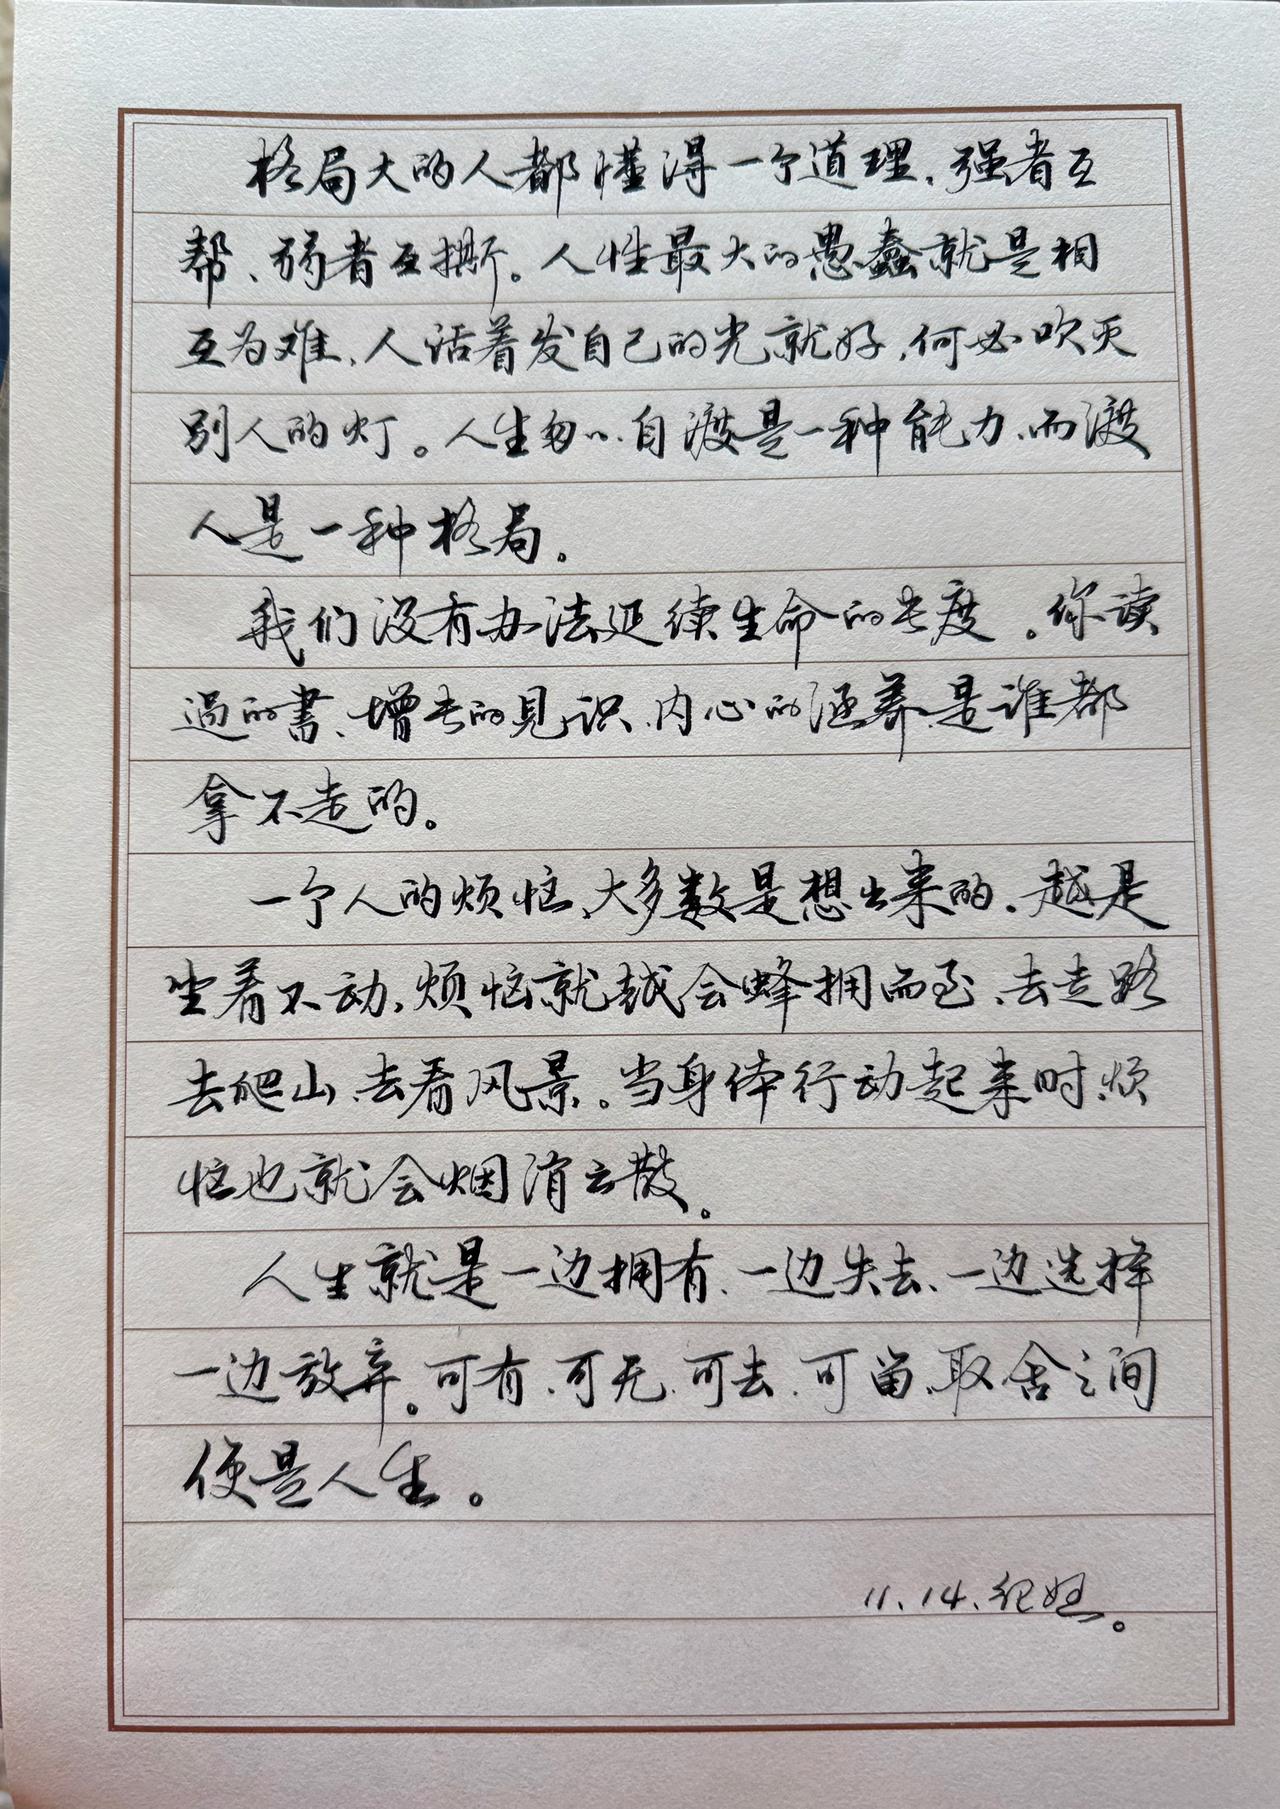 格局大的人都懂得一个道理,强者互
帮、弱者互撕。人性最大的愚蠢就是相
互为难,人活着发自己的光就好,何必吹灭
别人的灯。人生匆匆、自渡是一种能力、而渡
人是一种格局。
我们没有办法延续生命的长度。你读
过的書、增长的见识、内心的涵养是谁都
拿不走的。
一个人的烦恼、大多数是想出来的。越是
坐着不动,烦恼就越会蜂拥而至、去走路
去爬山、去看风景。当身体行动起来时、烦
恼也就会烟消云散。
人生就是一边拥有、一边失去、一边选择
一边放弃。可有、可无、可去、可留、取舍之间
便是人生。
11.14.